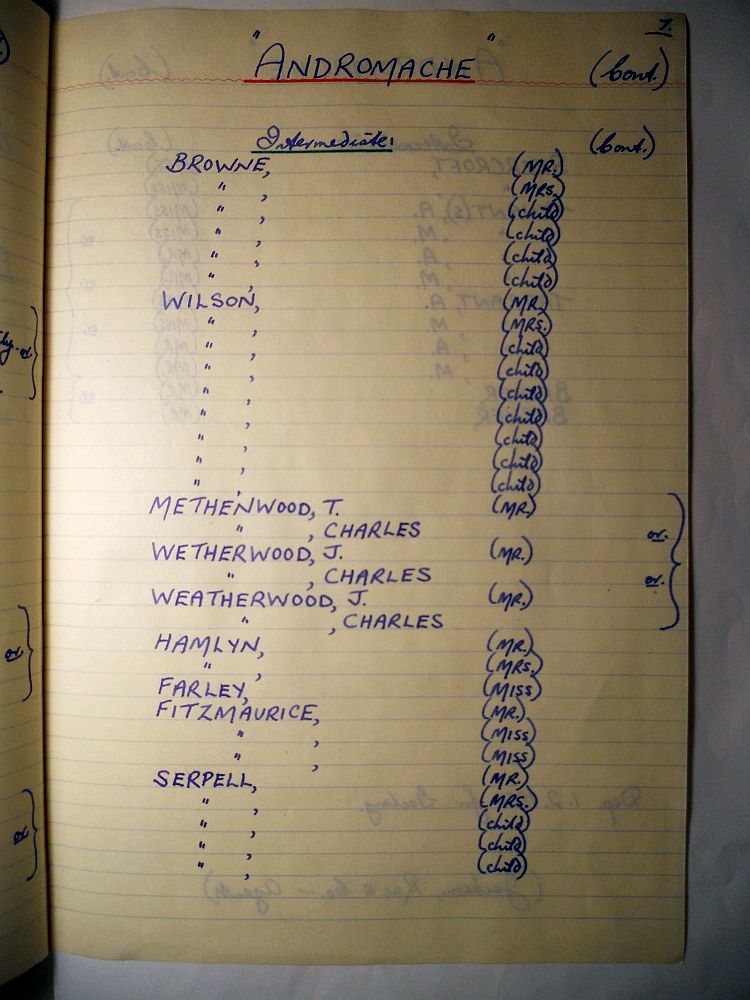 7.
"ANDROMACHE" (Cont.)
Intermediate: (Cont.)
BROWNE, (MR.)
" , (MRS.)
" , (child)
" , (child)
" , (child)
" , (child)
WILSON, (MR.)
" , (MRS.)
" , (child)
" , (child)
" , (child)
" , (child)
" , (child)
" , (child)
" , (child)
METHENWOOD, T. (MR.)
" , CHARLES or.
WETHERWOOD, J. (MR.)
" , CHARLES or.
WEATHERWOOD, J. (MR.)
" , CHARLES
HAMLYN, (MR.)
" , (MRS.)
FARLEY, (MISS)
FITZMAURICE, (MR.)
" , (MISS)
" , (MISS)
SERPELL, (MR.)
" , (MRS.)
" , (child)
" , (child)
" , (child)
or.
or.
or.